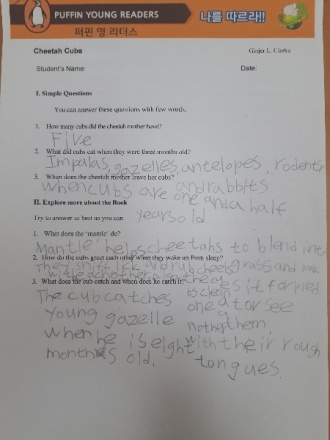 PUFFIN YOUNG READERS
나를 따르라!!
퍼핀 영 리더스
Cheetah Cubs
Ginjer L. Clarke
Student's Name:
Date:
I. Simple Questions
You can answer these questions with few words.
1. How many cubs did the cheetah mother have?
Five
2. What did cubs eat when they were three months old?
Impalas, gazelles, antelopes, rodents
and rabbits
3. When does the cheetah mother leave her cubs?
when cubs are one and a half
years old
II. Explore more about the Book
Try to answer as best as you can
1. What does the 'mantle' do?
Mantle helps cheetahs to blend into
grass and
2. How do the cubs great each other when they wake up from sleep?
They
to clean
one
another
with their rough
tongues.
3. What does the cub catch and when does he catch it?
The cub catches
young gazelle
when he is eight
months old.